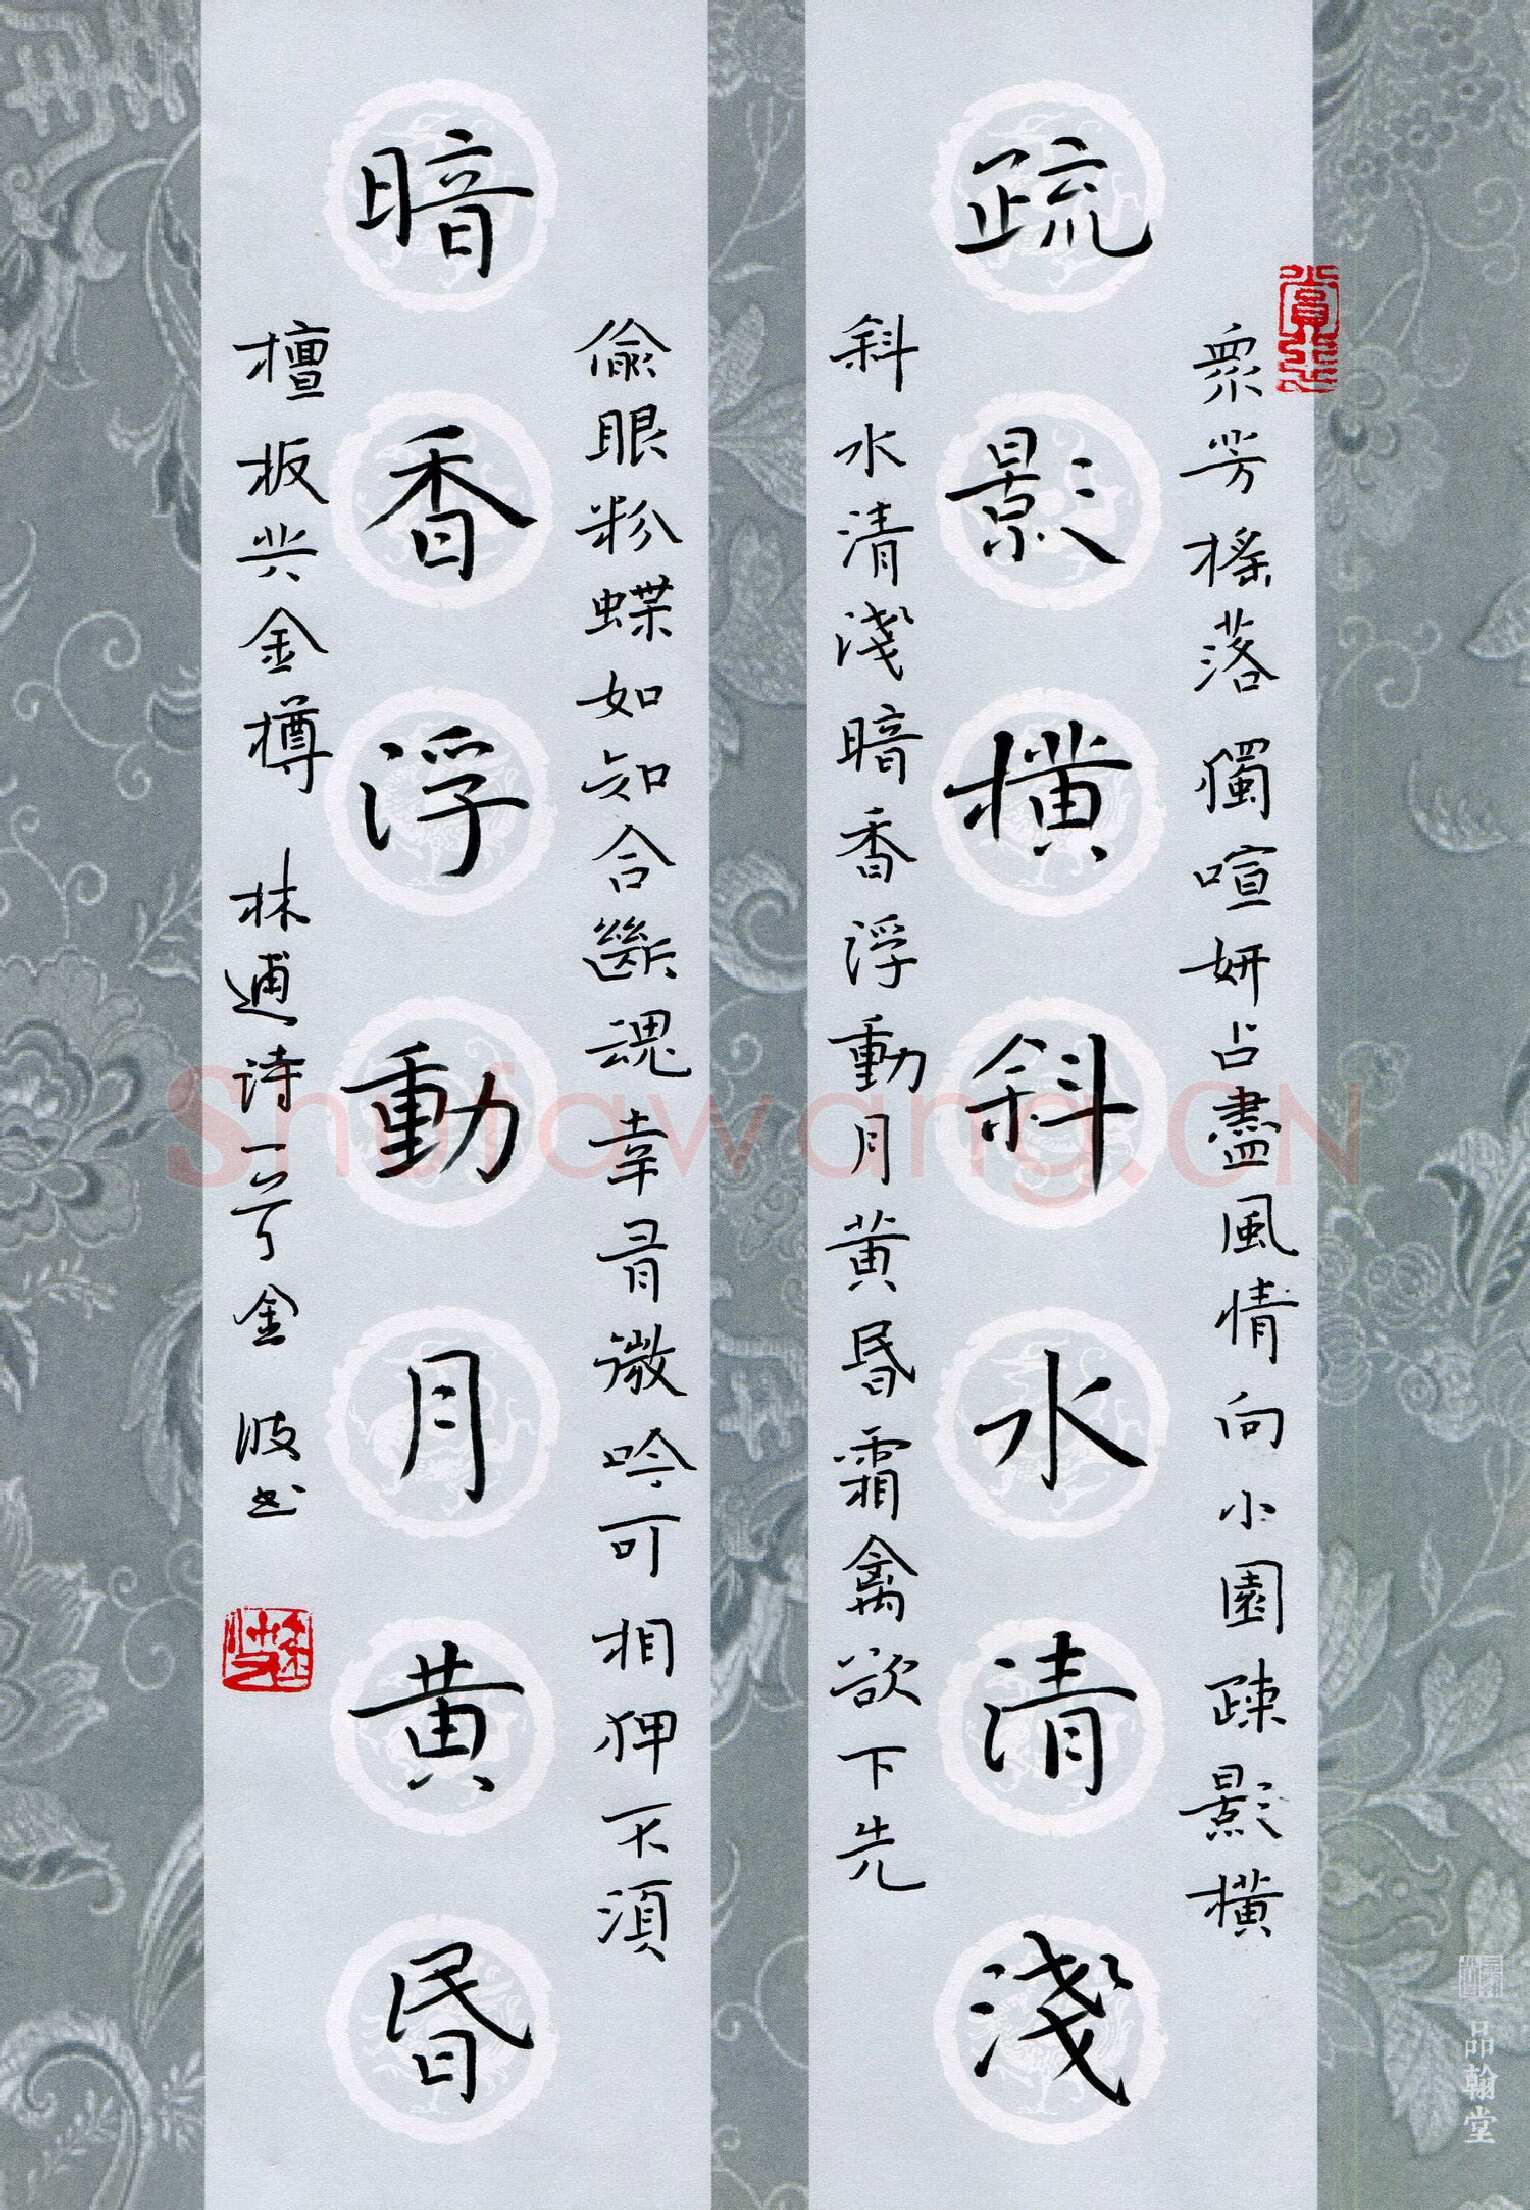 疏影橫斜水清淺
暗香浮動月黄昬
衆芳搖落獨喧妍占盡風情向小園疎影橫
斜水清淺暗香浮動月黄昬霜禽欲下先
偷眼粉蝶如知合斷魂幸有微吟可相狎不須
檀板共金樽 林逋诗一首金波书
Shufawang.CN
品翰堂